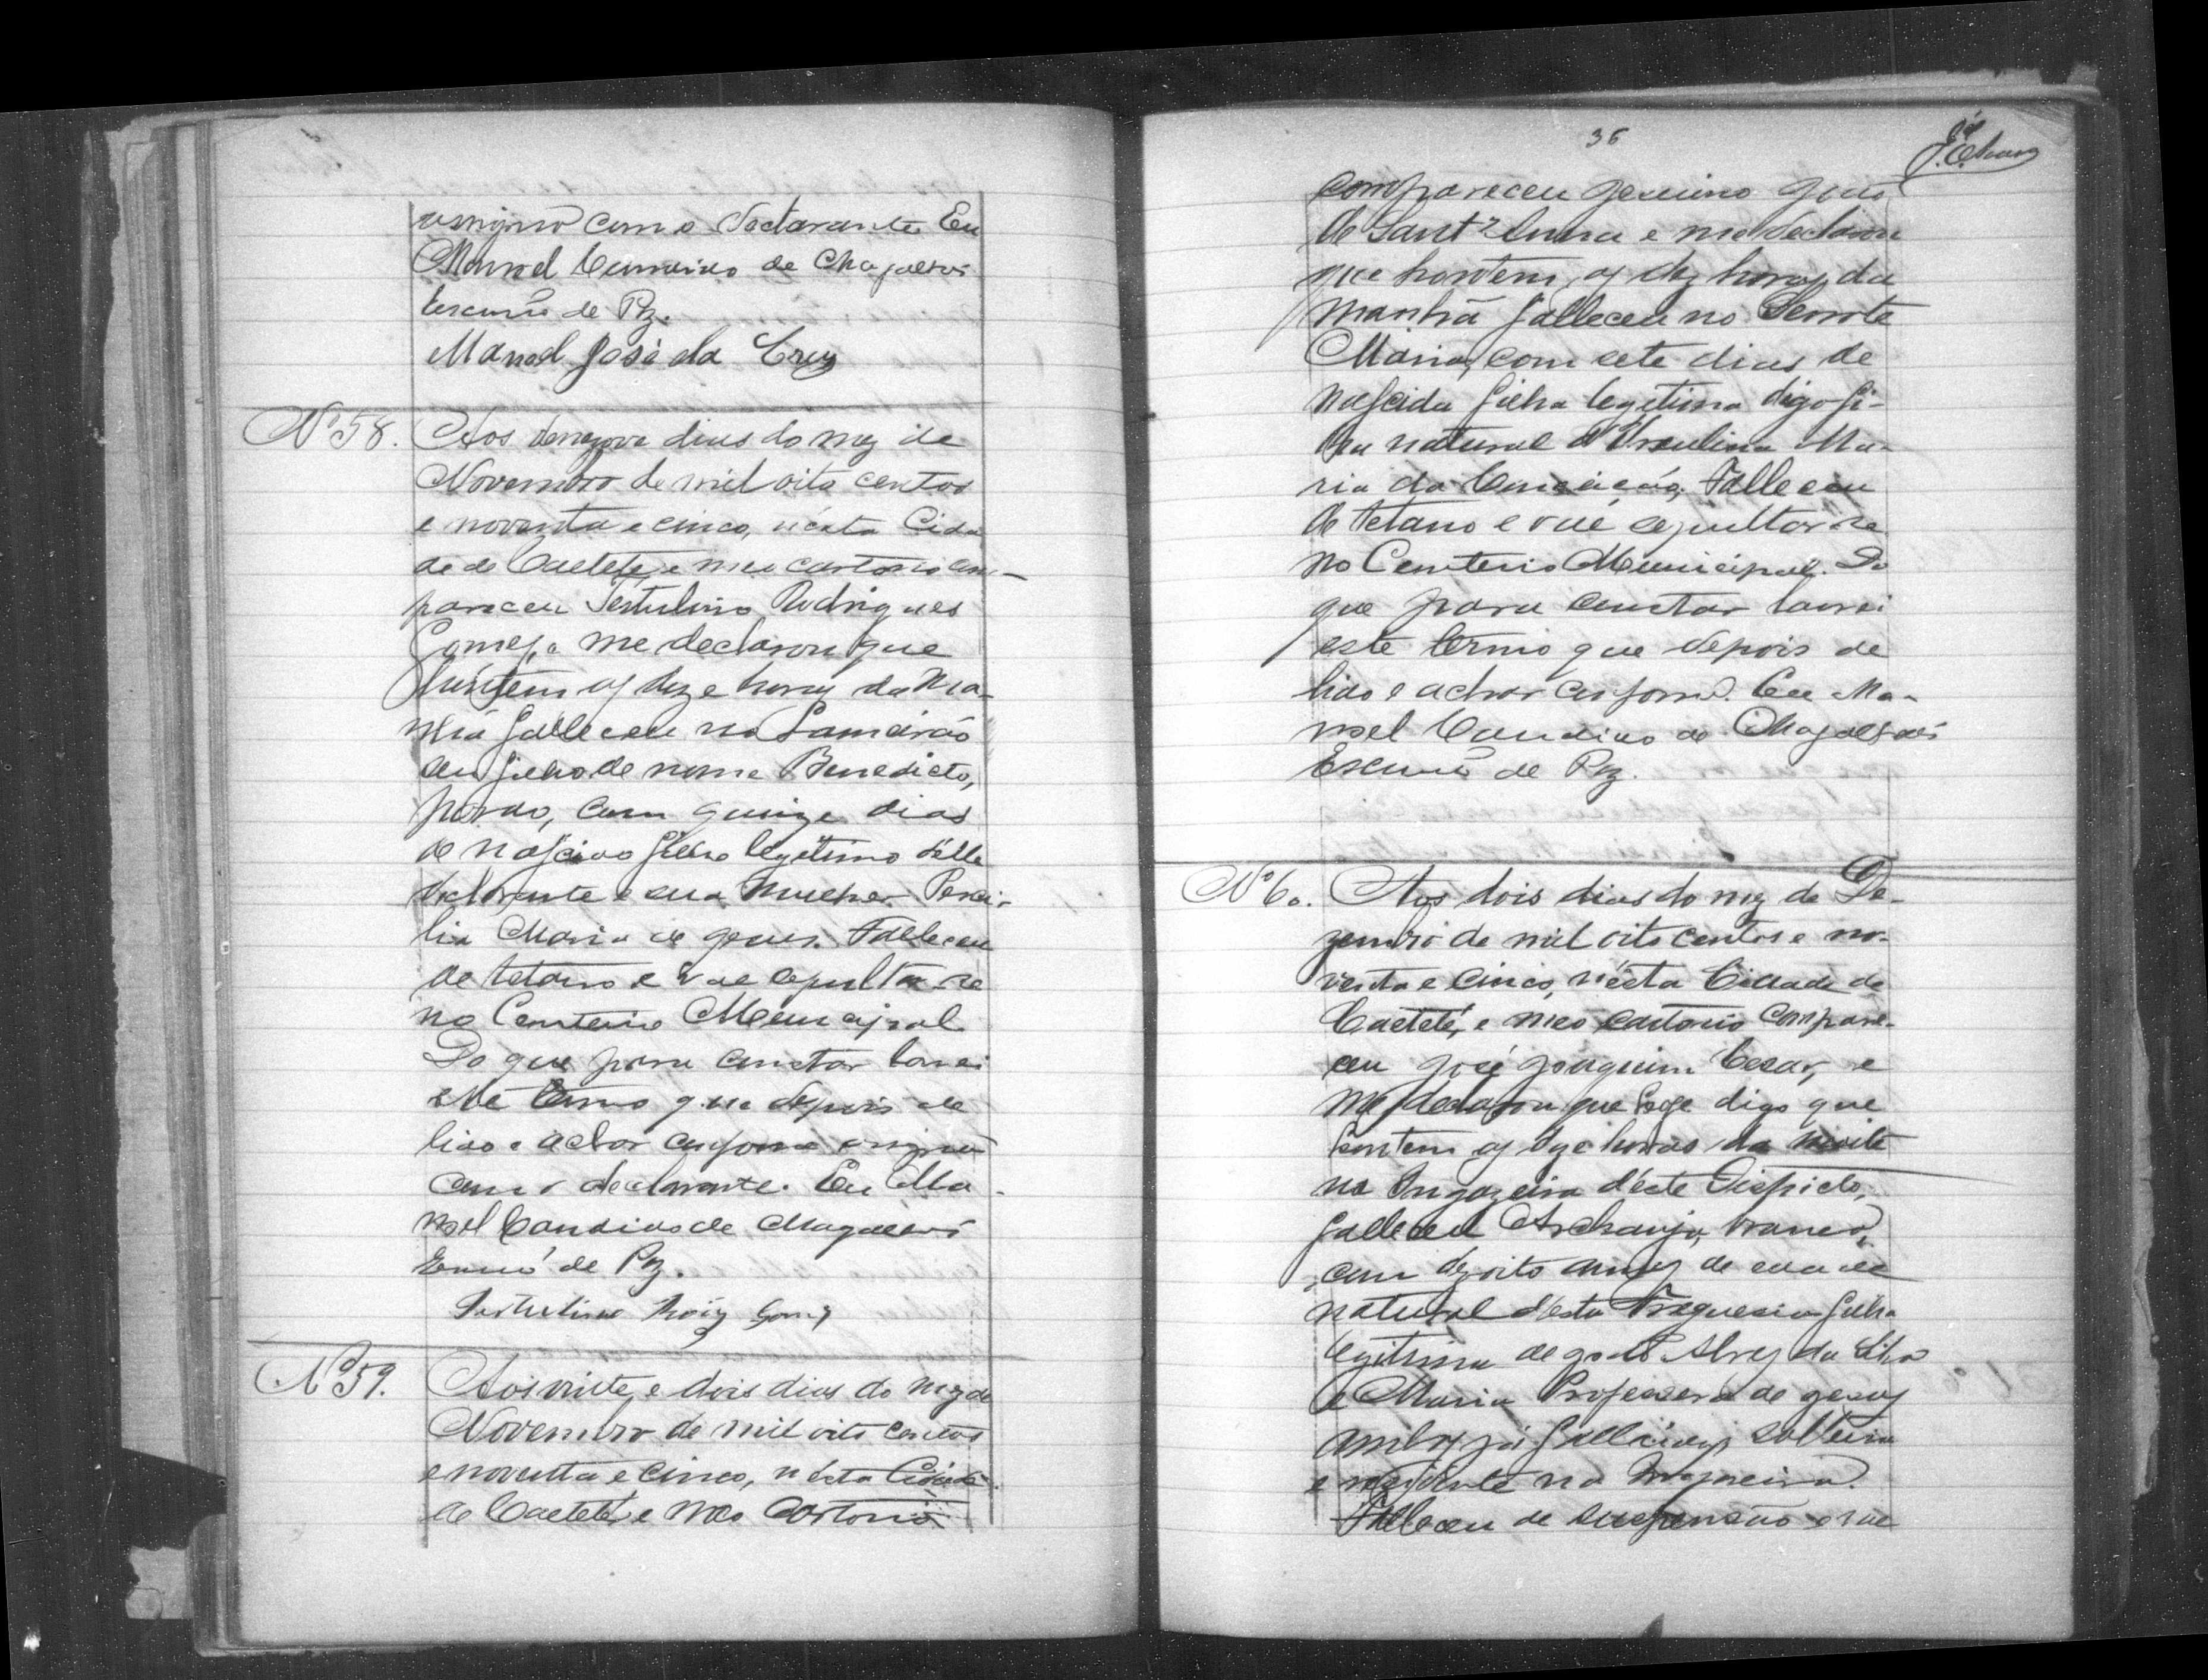 assignou com o declarante. Eu
Manoel Candido de Magalhães
Escrivão de Paz.
Manoel José da Cruz
Nº 58. Aos dezenove dias do mez de
Novembro de mil oito centos
e noventa e cinco, n'esta Cida
de de Caeteté, e meu cartorio com-
pareceu Sertulino Rodrigues
Gomes, e me declarou que
hontem as doze horas da ma-
nhã falleceu no Lameirão
seu filho de nome Benedicto,
pardo, com quinze dias
de nascido filho legitimo d'elle
declarante e sua mulher
Maria de Jesus. Falleceu
de tetano e vae sepultar-se
no Cemiterio Municipal
Do que para constar lavrei
este termo que depois de
lido e achar conforme assignou
com o declarante. Eu Ma-
noel Candido de Magalhães
Escrivão de Paz.
Sertulino Roiz Gomes
Nº 59. Aos vinte e dois dias do mez de
Novembro de mil oito centos
e noventa e cinco, n'esta Cidade
de Caeteté, e meo Cartorio
36
compareceu Jesuino
de Sant'Anna e me declarou
que hontem, as dez horas da
manhã falleceu no Serrote
Maria, com sete dias de
nascida filha legitima digo fi-
lha natural d'Ursulina Ma-
ria da Conceição, Falleceu
de tetano e vae sepultar-se
no Cemiterio Municipal. Do
que para constar lavrei
este termo que depois de
lido e achar conforme. Eu Ma-
noel Candido de Magalhães
Escrivão de Paz.
Nº 60. Aos dois dias do mez de De-
zembro de mil oito centos e no-
venta e cinco, n'esta Cidade de
Caeteté, e meo cartorio compare-
ceu José Joaquim Cesar, e
me declarou que hoje digo que
hontem as doze horas da noite
na Ingazeira d'este Districto,
falleceu Archanja, branca,
com dezoito annos de edade
natural d'esta Freguesia filha
legitima de João Alves da Silva
e Maria de Jesus
ambos já fallecidos, solteira
e residente na
Falleceu de suspensão e vae